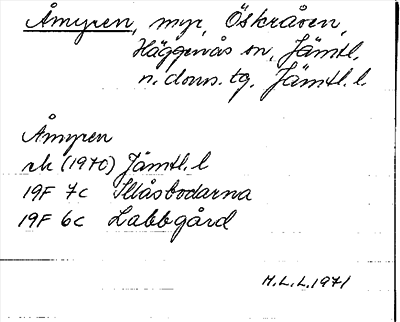 Åmyren, myr, Öskråsen,
Häggenås sn, Jämtl.
n. doms. tg, Jämtl. l.
Åmyren
rk (1970) Jämtl. l
19F 7c Illåsbodarna
19F 6c Labbgård
H.L.L. 1971